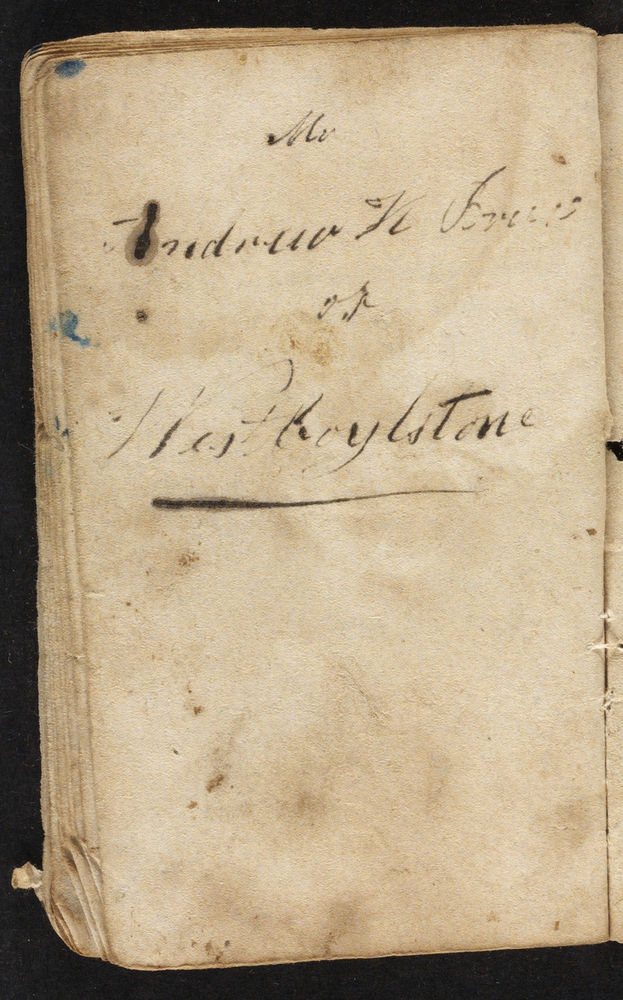 Mr
Andrew H
of
West Boylstone